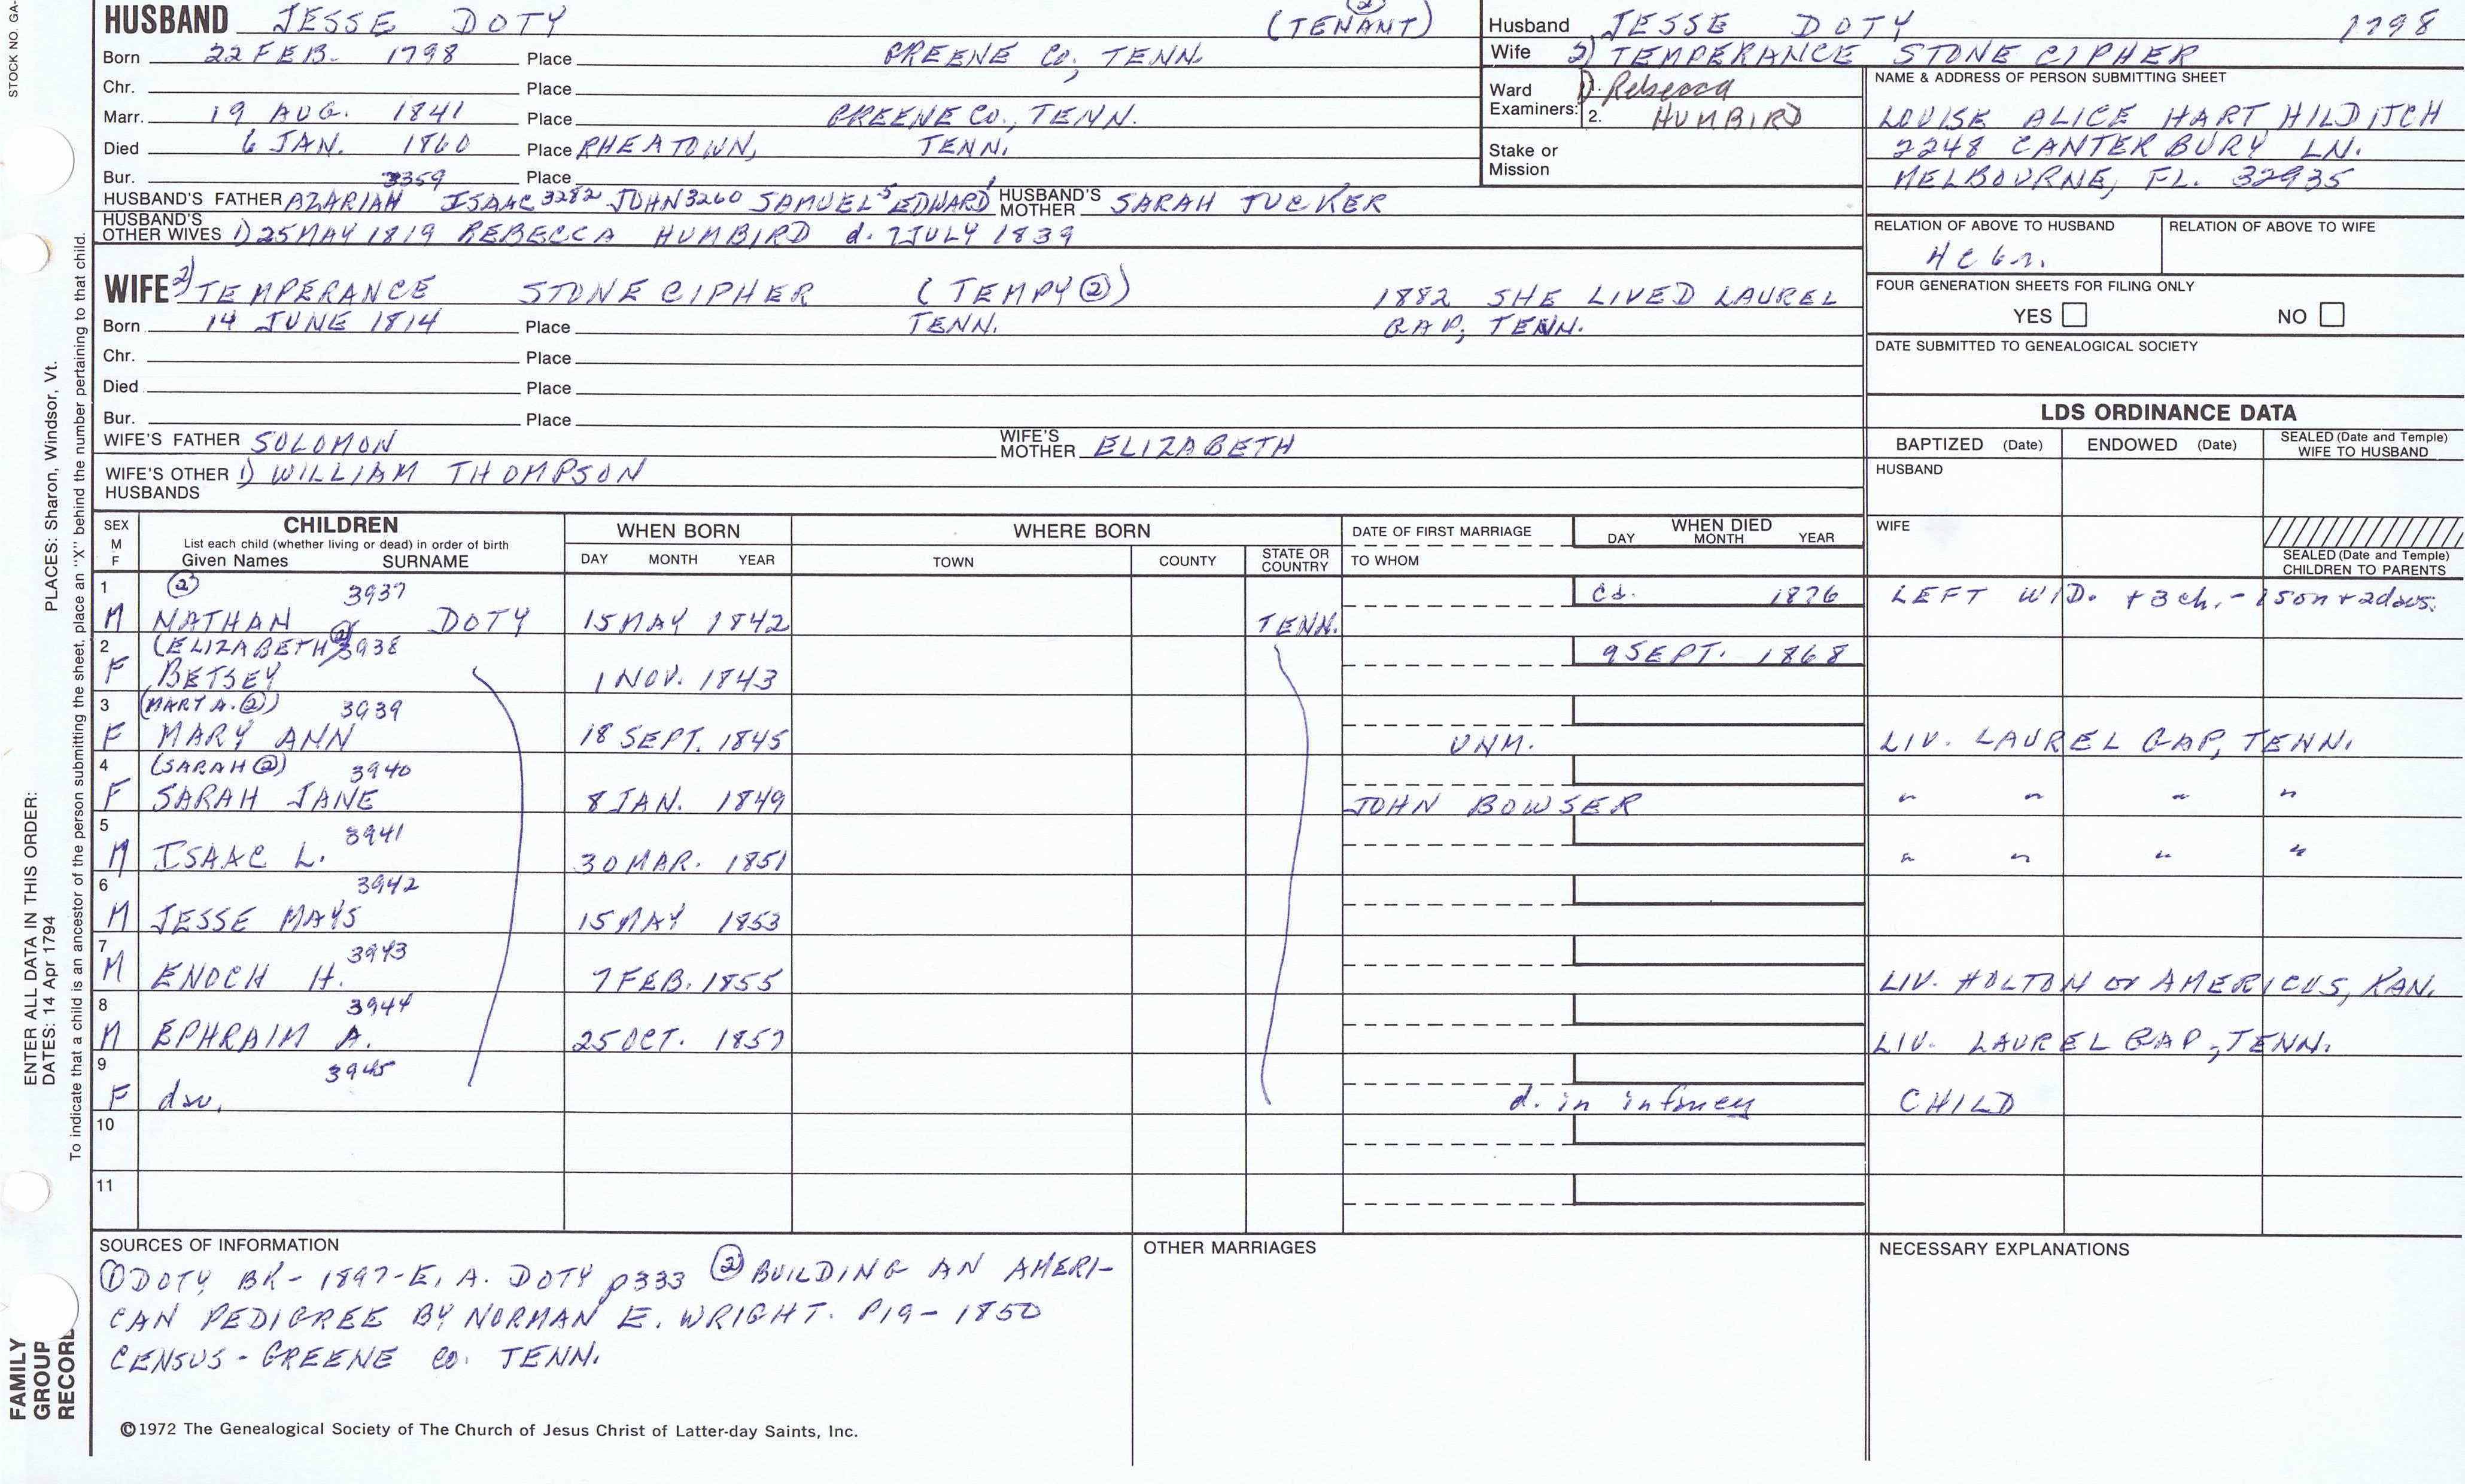 STOCK NO. GA-
PLACES: Sharon, Windsor, Vt.
ENTER ALL DATA IN THIS ORDER:
DATES: 14 Apr 1794
To indicate that a child is an ancestor of the person submitting the sheet, place an "X" behind the number pertaining to that child.
FAMILY
GROUP
RECORD
HUSBAND JESSE DOTY (TENANT) ②
Born 22 FEB. 1798 Place GREENE CO, TENN.
Chr. Place
Marr. 19 AUG. 1841 Place GREENE CO., TENN.
Died 6 JAN. 1860 Place RHEATOWN, TENN.
Bur. Place
3359
HUSBAND'S FATHER AZARIAH ISAAC 3282 JOHN 3260 SAMUEL 5 EDWARD 1 HUSBAND'S MOTHER SARAH TUCKER
HUSBAND'S OTHER WIVES 1) 25 MAY 1819 REBECCA HUMBIRD d. 7 JULY 1839
WIFE 2) TEMPERANCE STONECIPHER (TEMPY ②) 1882 SHE LIVED LAUREL
Born 14 JUNE 1814 Place TENN. GAP, TENN.
Chr. Place
Died Place
Bur. Place
WIFE'S FATHER SOLOMON WIFE'S MOTHER ELIZABETH
WIFE'S OTHER HUSBANDS 1) WILLIAM THOMPSON
Husband JESSE DOTY 1798
Wife 2) TEMPERANCE STONECIPHER
Ward Examiners: 1. Rebecca
2. HUMBIRD
Stake or Mission
NAME & ADDRESS OF PERSON SUBMITTING SHEET
LOUISE ALICE HART HILDITCH
2248 CANTERBURY LN.
MELBOURNE, FL. 32935
RELATION OF ABOVE TO HUSBAND RELATION OF ABOVE TO WIFE
4c6r.
FOUR GENERATION SHEETS FOR FILING ONLY
YES NO
DATE SUBMITTED TO GENEALOGICAL SOCIETY
LDS ORDINANCE DATA
BAPTIZED (Date) ENDOWED (Date) SEALED (Date and Temple) WIFE TO HUSBAND
HUSBAND
WIFE
SEALED (Date and Temple) CHILDREN TO PARENTS
SEX M F CHILDREN WHEN BORN WHERE BORN DATE OF FIRST MARRIAGE WHEN DIED
List each child (whether living or dead) in order of birth
Given Names SURNAME DAY MONTH YEAR TOWN COUNTY STATE OR COUNTRY TO WHOM DAY MONTH YEAR
1 ② 3937 Cd. 1876 LEFT WID. + 3 ch. - 1 son + 2 daus.
M NATHAN DOTY 15 MAY 1842 TENN.
2 (ELIZABETH ② 3938 9 SEPT. 1868
F BETSEY 1 NOV. 1843
3 (MARY A. ②) 3939
F MARY ANN 18 SEPT. 1845 UNM. LIV. LAUREL GAP, TENN.
4 (SARAH ②) 3940
F SARAH JANE 8 JAN. 1849 JOHN BOWSER " " " "
5 3941
M ISAAC L. 30 MAR. 1851 " " " "
6 3942
M JESSE MAYS 15 MAY 1853
7 3943
M ENOCH H. 7 FEB. 1855 LIV. HOLTON or AMERICUS, KAN.
8 3944
M EPHRAIM A. 25 OCT. 1857 LIV. LAUREL GAP, TENN.
9 3945
F dau. d. in infancy CHILD
10
11
SOURCES OF INFORMATION
① DOTY BK - 1897 - E. A. DOTY p333 ② BUILDING AN AMERI-
CAN PEDIGREE BY NORMAN E. WRIGHT. P19 - 1850
CENSUS - GREENE CO. TENN.
OTHER MARRIAGES
NECESSARY EXPLANATIONS
©1972 The Genealogical Society of The Church of Jesus Christ of Latter-day Saints, Inc.